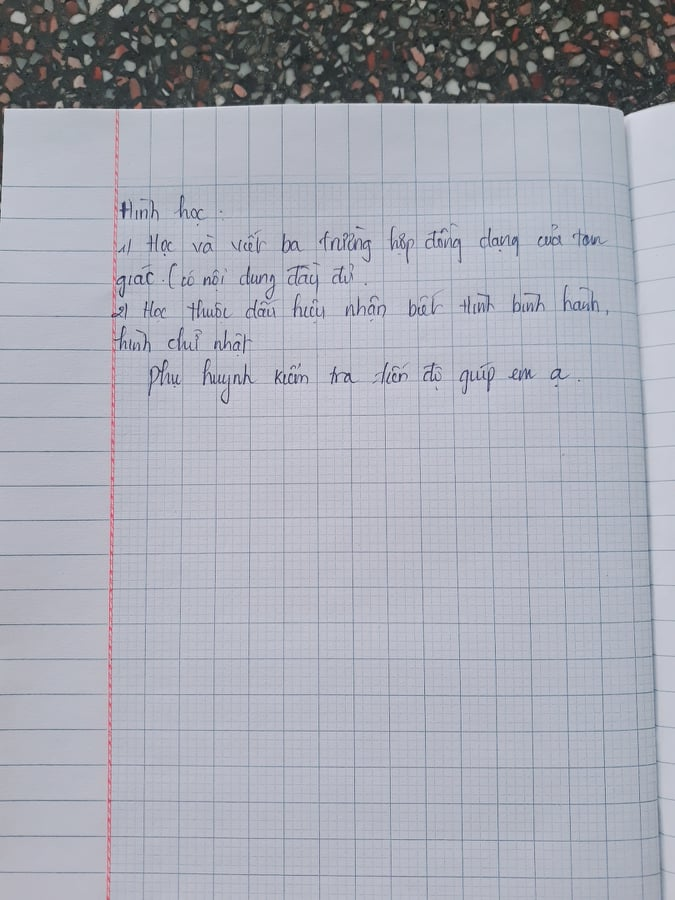 Hình học:
1) Học và viết ba trường hợp đồng dạng của tam
giác. (có nội dung đầy đủ.
2) Học thuộc dấu hiệu nhận biết Hình bình hành,
hình chữ nhật
Phụ huynh kiểm tra tiến độ giúp em ạ.